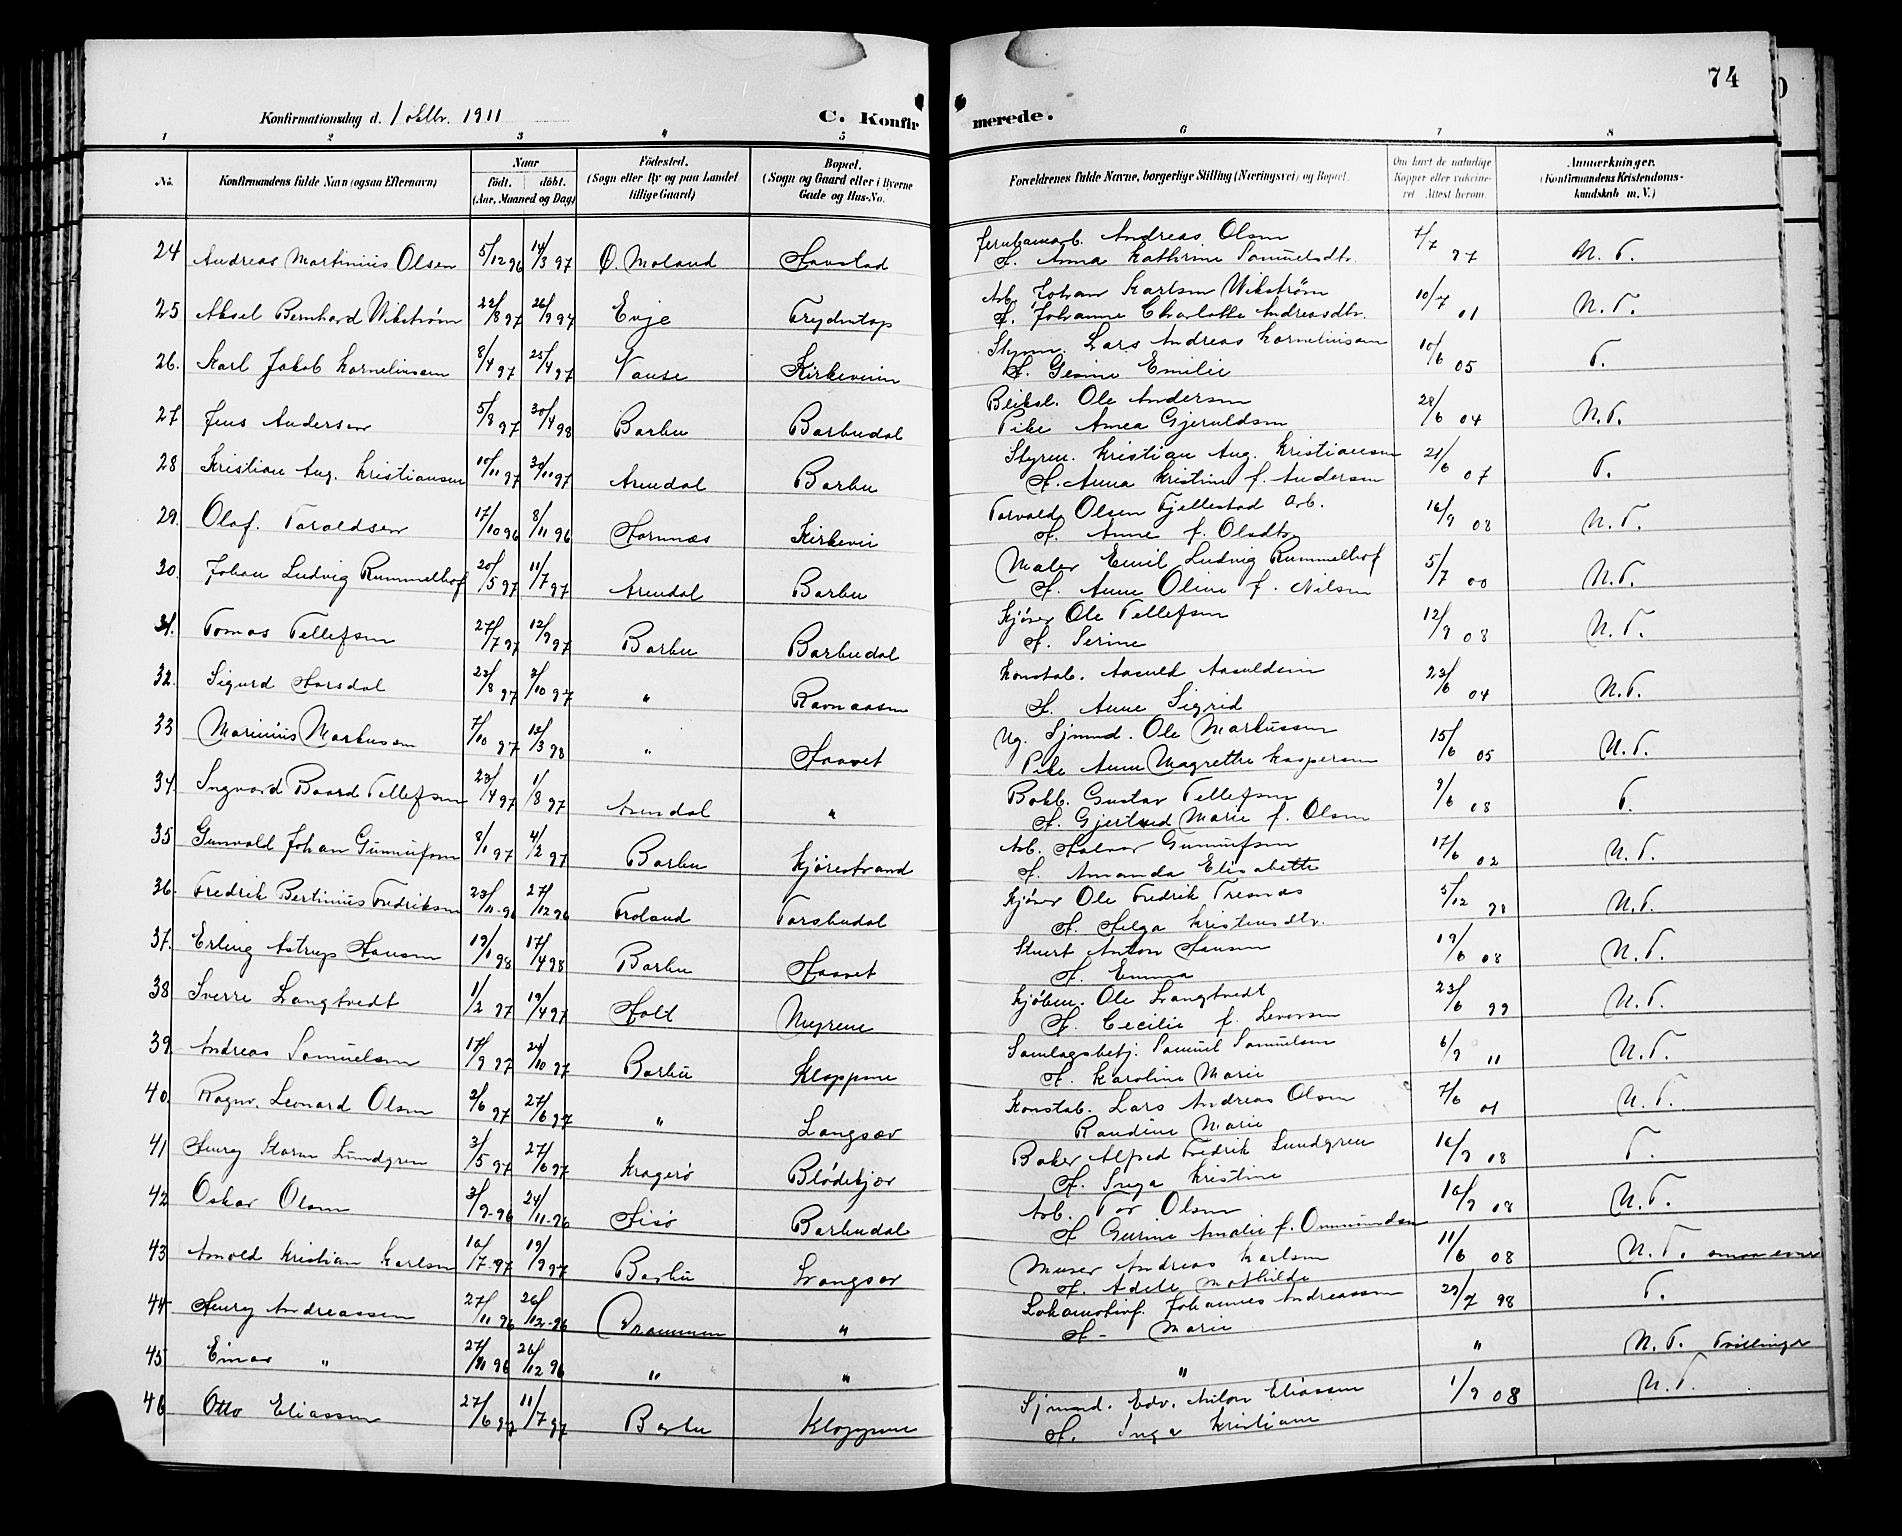 74
Konfirmationsdag d. 1 oktbr. 1911
C. Konfirmerede.
1 2 3 4 5 6 7 8
No. Konfirmandens fulde Navn (ogsaa Efternavn) Naar født. døbt. (Aar, Maaned og Dag) Födested. (Sogn eller By og paa Landet tillige Gaard) Bopæl. (Sogn og Gaard eller i Byerne Gade og Hus-No. Forældrenes fulde Navne, borgerlige Stilling (Næringsvei) og Bopæl. Om havt de naturlige Kopper eller vakcineret. Attest herom. Anmærkninger. (Konfirmandens Kristendomskundskab m. V.)
24 Andreas Martinius Olsen 5/12 96 14/3 97 Ø. Moland Havstad Jernbanearb. Andreas Olsen 7/7 97 M. T.
H. Anna Kathrine Samuelsdtr.
25 Aksel Bernhard Wikstrøm 22/8 97 26/9 97 Evje Frydentop Arb. Johan Karlsen Wikstrøm 10/7 01 N. T.
H. Johanne Charlotte Andreasdtr.
26. Karl Jakob Korneliusen 8/4 97 25/4 97 Vanse Kirkeveien Styrm. Lars Andreas Korneliusen 10/6 05 T.
H. Gesine Emilie
27 Jens Andersen 5/8 97 30/4 98 Barbu Barbudal Bliksl. Ole Andersen 28/6 04 N. T.
Pike Anea Gjeruldsen
28 Kristian Aug. Kristiansen 10/11 97 30/11 97 Arendal Barbu Styrm. Kristian Aug. Kristiansen 21/6 07 T.
H. Anna Kristine f. Andersen
29. Olaf. Taraldsen 17/10 96 8/11 96 Hornnæs Kirkevei Torvald Olsen Fjellestad Arb. 16/9 08 N. T.
H. Anne f. Olsdtr.
30. Johan Ludvig Rummelhof 20/5 97 11/7 97 Arendal Barbu Maler Emil Ludvig Rummelhof 5/7 00 N. T.
H. Anne Oline f. Nilsen
31. Tomas Tellefsen 27/7 97 12/9 97 Barbu Barbudal Kjører Ole Tellefsen 12/9 08 N. T.
H. Serine
32. Sigurd Harsdal 23/8 97 3/10 97 " Ravnaasen Konstab. Aasuld Aasuldsen 23/6 04 N. T.
H. Anne Sigrid
33 Marinius Markussen 7/10 97 13/3 98 " Haavet Ug. Sjmd. Ole Markussen 15/6 05 N. T.
Pike Anne Magrethe Kaspersen
34. Ingvard Baard Tellefsen 23/4 97 1/8 97 Arendal " Bokb. Gustav Tellefsen 9/6 08 T.
H. Gjertrud Marie f. Olsen
35 Gunvald Johan Gunnufsen 8/1 97 4/2 97 Barbu Kjørestrand Arb. Halvor Gunnufsen 17/6 02 N. T.
H. Amanda Elisabeth
36. Fredrik Bertinius Fredriksen 23/11-96 27/12 96 Froland Torsbudal Kjører Ole Fredrik Tresnes 5/12 98 N. T.
H. Helga Kristensdtr.
37. Erling Astrup Hansen 19/1 98 17/4 98 Barbu Haavet Stuert Anton Hansen 19/6 08 N. T.
H. Emma
38 Sverre Langtvedt 1/2 97 19/4 97 Holt Myrene Kjøbm. Ole Langtvedt 23/6 99 N. T.
H. Cecilie f. Leversen
39. Andreas Samuelsen 17/9 97 24/10 97 Barbu Kloppene Samlagsbetj. Samuel Samuelsen 6/9 11 N. T.
H. Karoline Marie
40. Ragnv. Leonard Olsen 2/6 97 27/6 97 " Langsæv Konstab. Lars Andreas Olsen 7/6 01 N. T.
Randine Marie
41 Henry Storm Lundgren 3/5 97 27/6 97 Kragerø Blødekjær Baker Alfred Fredrik Lundgren 16/9 08 T.
H. Inga Kristine
42 Oskar Olsen 3/9-96 24/11-96 Hisø Barbudal Arb. Tor Olsen 16/9 08 N. T.
H. Gurine Amalie f. Ommundsen
43 Arnold Kristian Karlsen 16/7-97 19/9 97 Barbu Langsæv Murer Andreas Karlsen 11/6 08 N. T.
H. Adele Mathilde
44 Henry Andreassen 27/11 96 26/12-96 Drammen " Lokomotivf. Johannes Andreassen 29/7 98 T.
H- Marie
45 Einar " 27/11 96 26/12 96 " " " " N. T. Tvillinger
46 Otto Eliassen 27/6 97 11/7 97 Barbu Kloppene Sjmand. Edv. Anton Eliassen 1/9 08 N. T.
H. Inga Kristiane